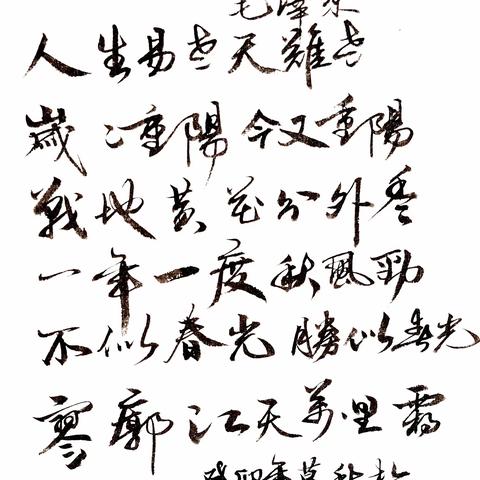 毛澤東
人生易老天難老
歲〻重陽 今又重陽
戰地黃花分外香
一年一度秋風勁
不似春光 勝似春光
寥廓江天萬里霜
癸卯年莫秋